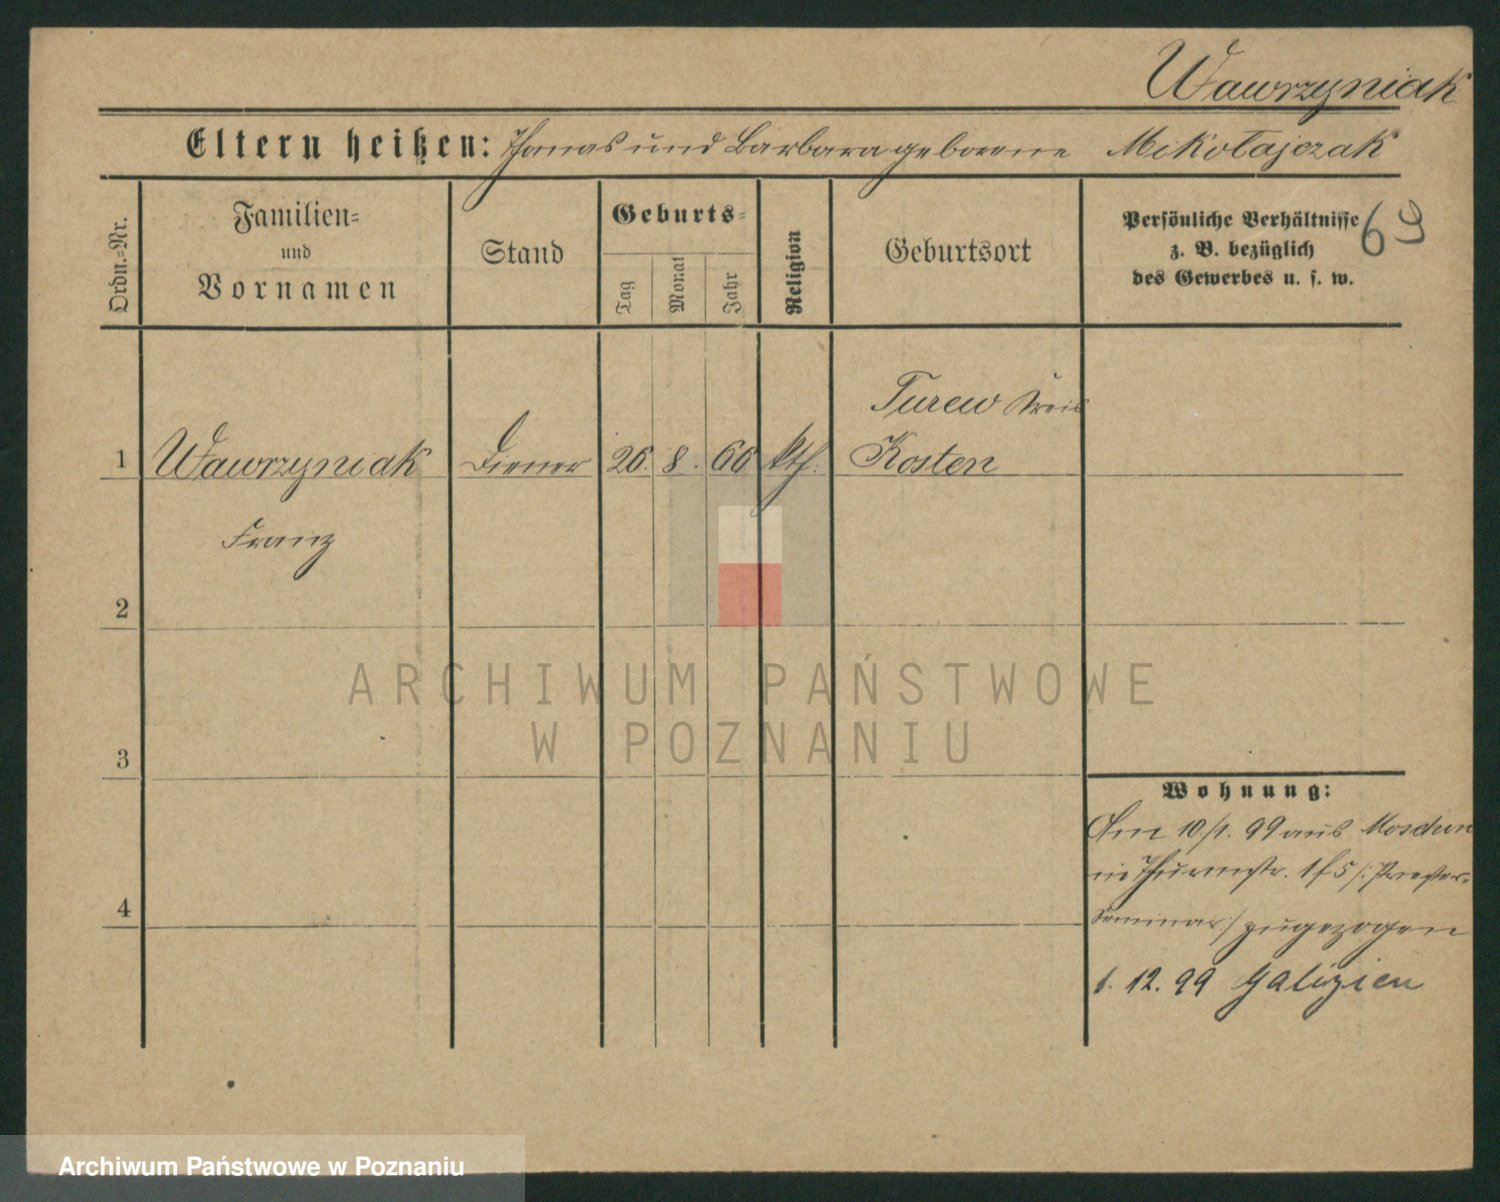 Wawrzyniak
Eltern heißen: Thomas und Barbara geborene Mikołajczak
Ordn.=Nr.
Familien=
und
Vornamen
Stand
Geburts=
Tag
Monat
Jahr
Religion
Geburtsort
Persönliche Verhältnisse
z. B. bezüglich
des Gewerbes u. s. w.
69
Turew Kreis
1 Wawrzyniak Diener 26. 8. 66 kth. Kosten
Franz
2
3
4
Wohnung:
Am 10./1. 99 aus Moschin
in Thurmstr. 1/5 /: Priester-
Seminar :/ zugezogen
1. 12. 99 Galizien
ARCHIWUM PAŃSTWOWE
W POZNANIU
Archiwum Państwowe w Poznaniu